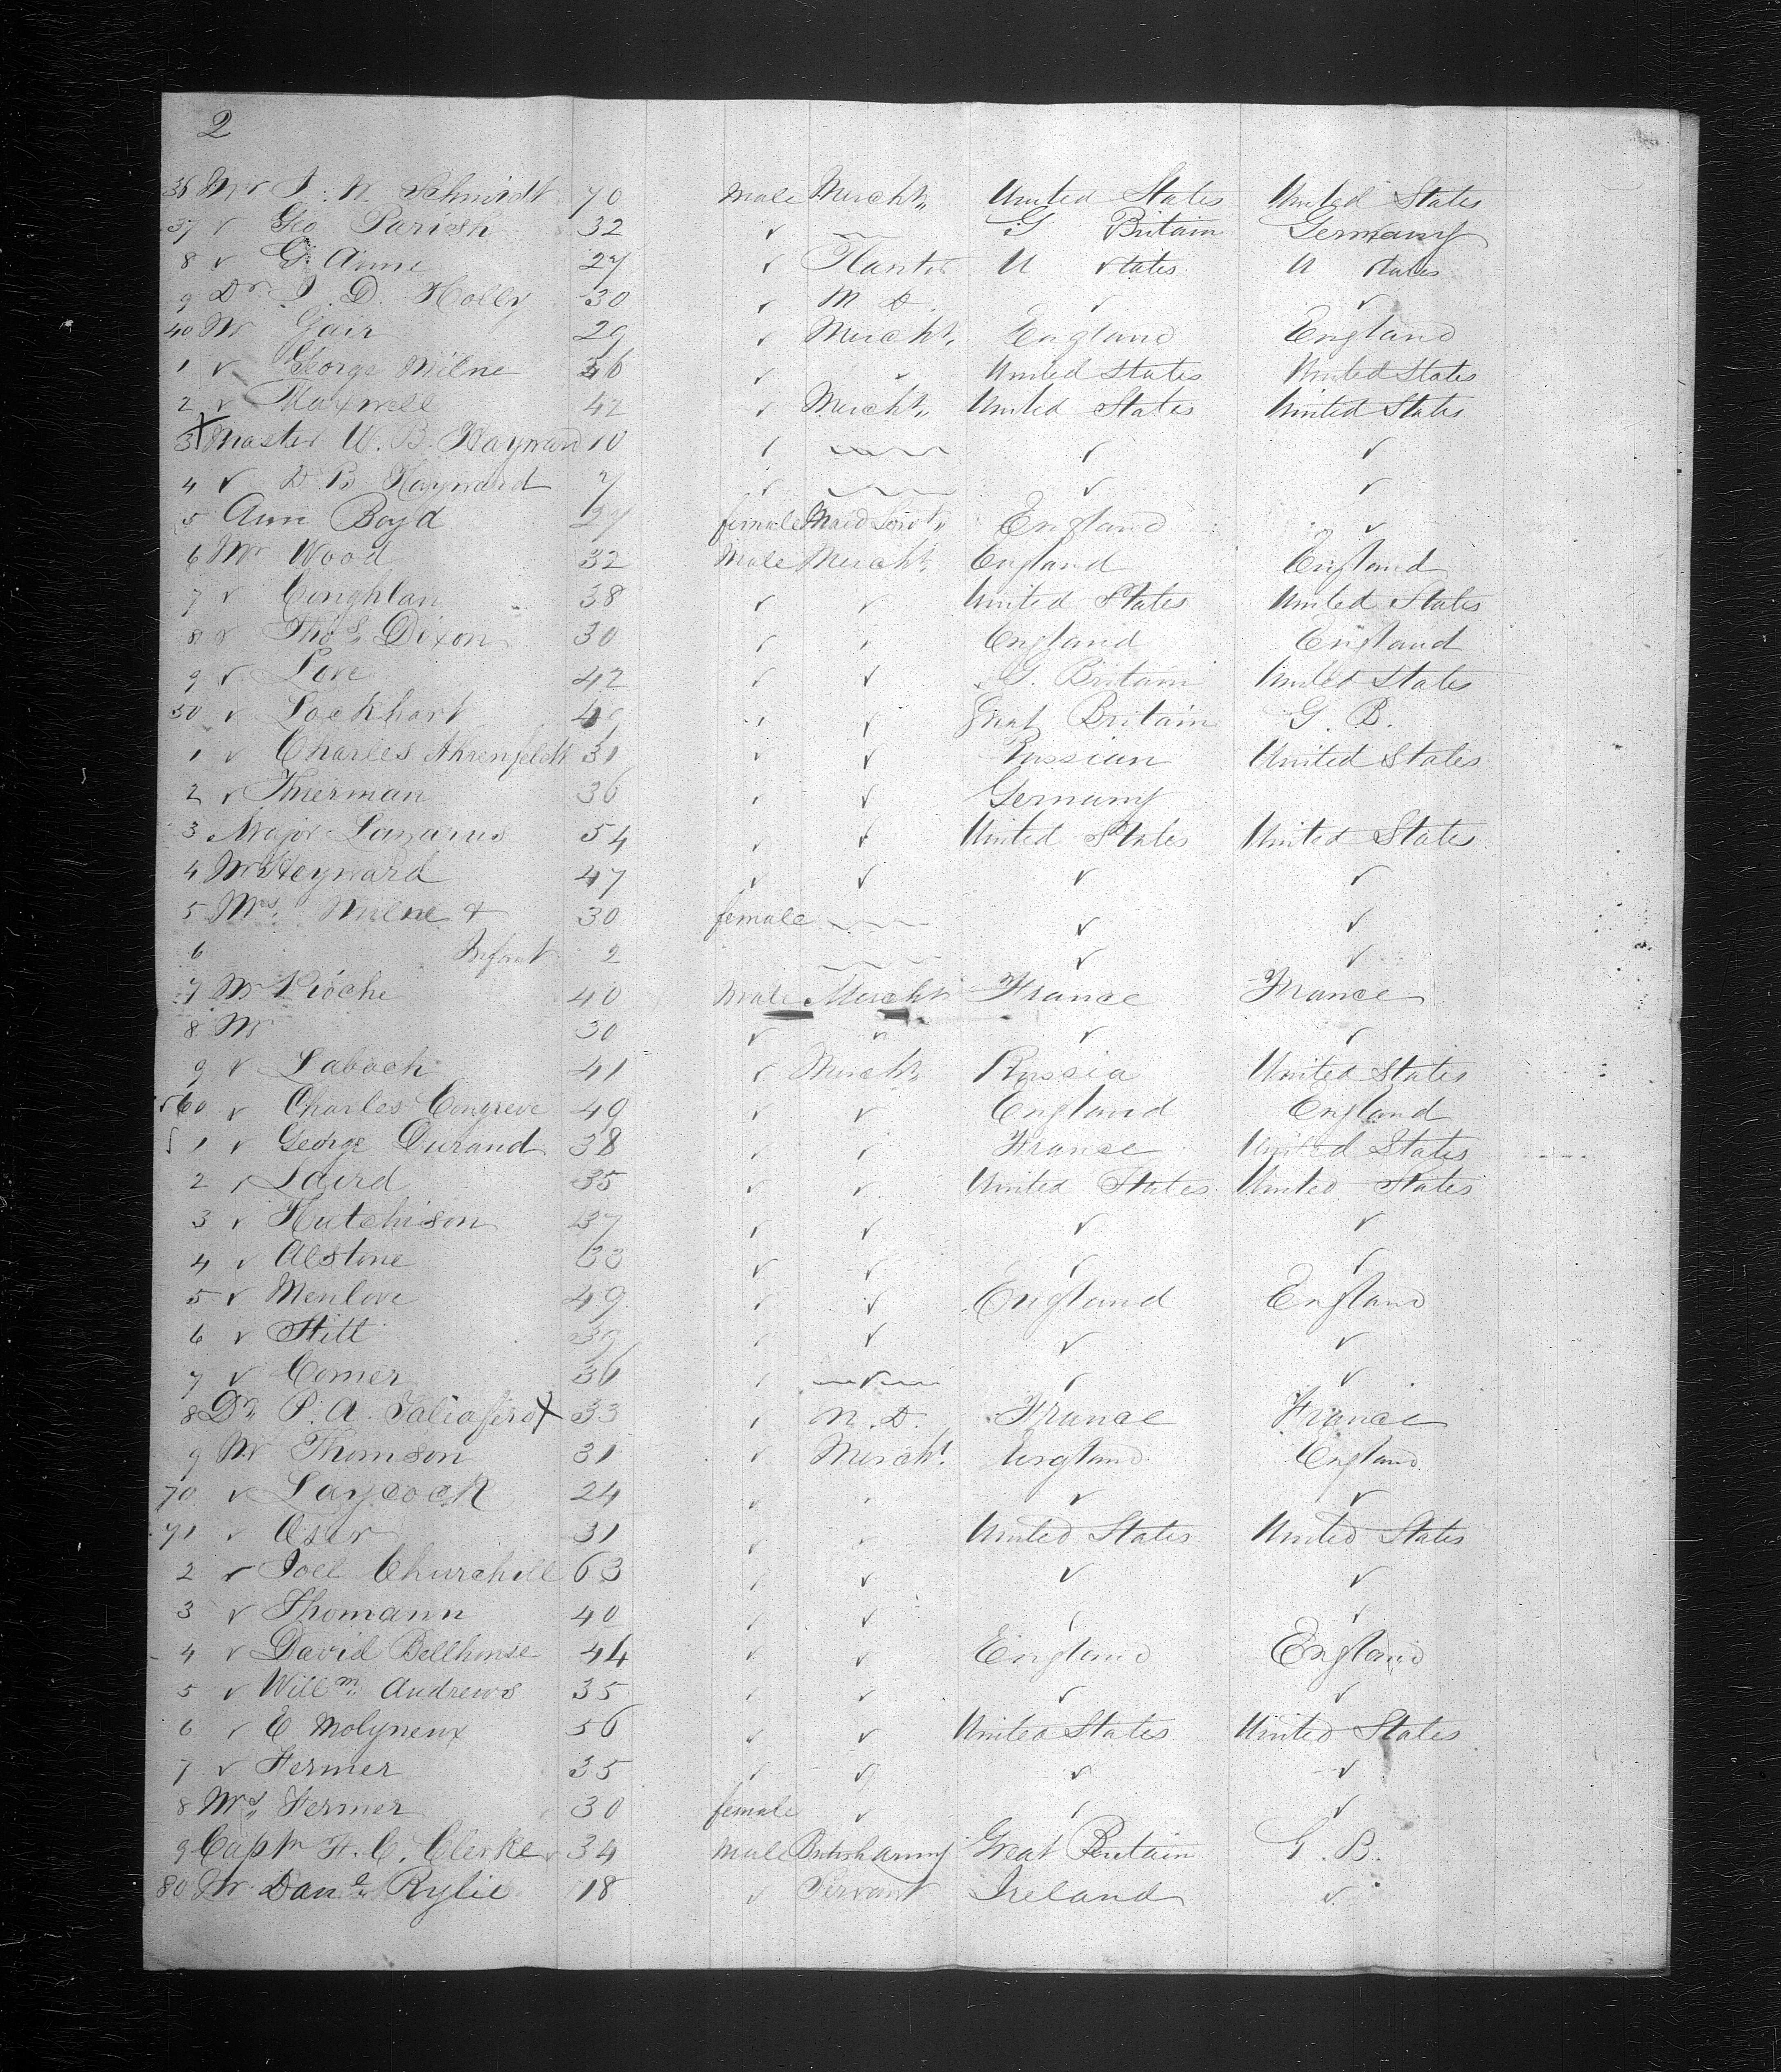 2
36 Mr J. W. Schmidt 70 Male Mercht. United States United States
37 ✓ Geo Parish 32 ✓ G Britain Germany
8 ✓ G. 27 ✓ Planter U States U States
9 Dr J. D. Holly 30 ✓ M D. ✓ ✓
40 Mr Gair 29 ✓ Mercht. England England
1 ✓ George Milne 36 ✓ ✓ United States United States
2 ✓ Maxwell 42 ✓ Mercht. United States United States
3 Master W. B. Hayward 10 ✓ ✓ ✓
4 ✓ D B Hayward 7 ✓ ✓ ✓
5 Ann Boyd 27 female Maid Servt. England ✓
6 Mr Wood 32 Male Mercht. England England
7 ✓ Coughlan 38 ✓ ✓ United States United States
8 ✓ Thos. Dixon 30 ✓ ✓ England England
9 ✓ Love 42 ✓ ✓ G. Britain United States
50 ✓ Lockhart 49 ✓ ✓ Great Britain G. B.
1 ✓ Charles Ahrenfeldt 31 ✓ ✓ Russian United States
2 ✓ Thierman 36 ✓ ✓ Germany
3 Major Lazarus 54 ✓ ✓ United States United States
4 Mr Heyward 47 ✓ ✓ ✓ ✓
5 Mrs. Milne & 30 female ✓ ✓
6 Infant 2 ✓ ✓
7 Mr Pioche 40 Male Mercht France France
8 Mr 30 ✓ " ✓ ✓
9 ✓ Laboch 41 ✓ Mercht. Russia United States
60 ✓ Charles Congreve 49 ✓ ✓ England England
1 ✓ George Durand 38 ✓ ✓ France United States
2 ✓ Laird 35 ✓ ✓ United States United States
3 ✓ Hutchison 37 ✓ ✓ ✓ ✓
4 ✓ Alstone 33 ✓ ✓ ✓ ✓
5 ✓ Menlove 49 ✓ ✓ England England
6 ✓ Stitt ✓ ✓ ✓ ✓
7 ✓ Comer 36 ✓ ✓ ✓ ✓
8 Dr. P. A. Taliafero X 33 ✓ M. D. France France
9 Mr Thomson 31 ✓ Mercht. England England
70 ✓ Laycock 24 ✓ ✓ ✓ ✓
71 ✓ Oser 31 ✓ ✓ United States United States
2 ✓ Joel Churchill 63 ✓ ✓ ✓ ✓
3 ✓ Thomann 40 ✓ ✓ ✓ ✓
4 ✓ David Bellhouse 44 ✓ ✓ England England
5 ✓ Willm. Andrews 35 ✓ ✓ ✓ ✓
6 ✓ E Molyneux 56 ✓ ✓ United States United States
7 ✓ Fermer 35 ✓ ✓ ✓ ✓
8 Mrs. Fermer 30 female ✓ ✓ ✓
9 Captn H. C. Clerke 34 Male British Army Great Britain G. B.
80 Mr. Danl. Rylie 18 ✓ Servant Ireland ✓